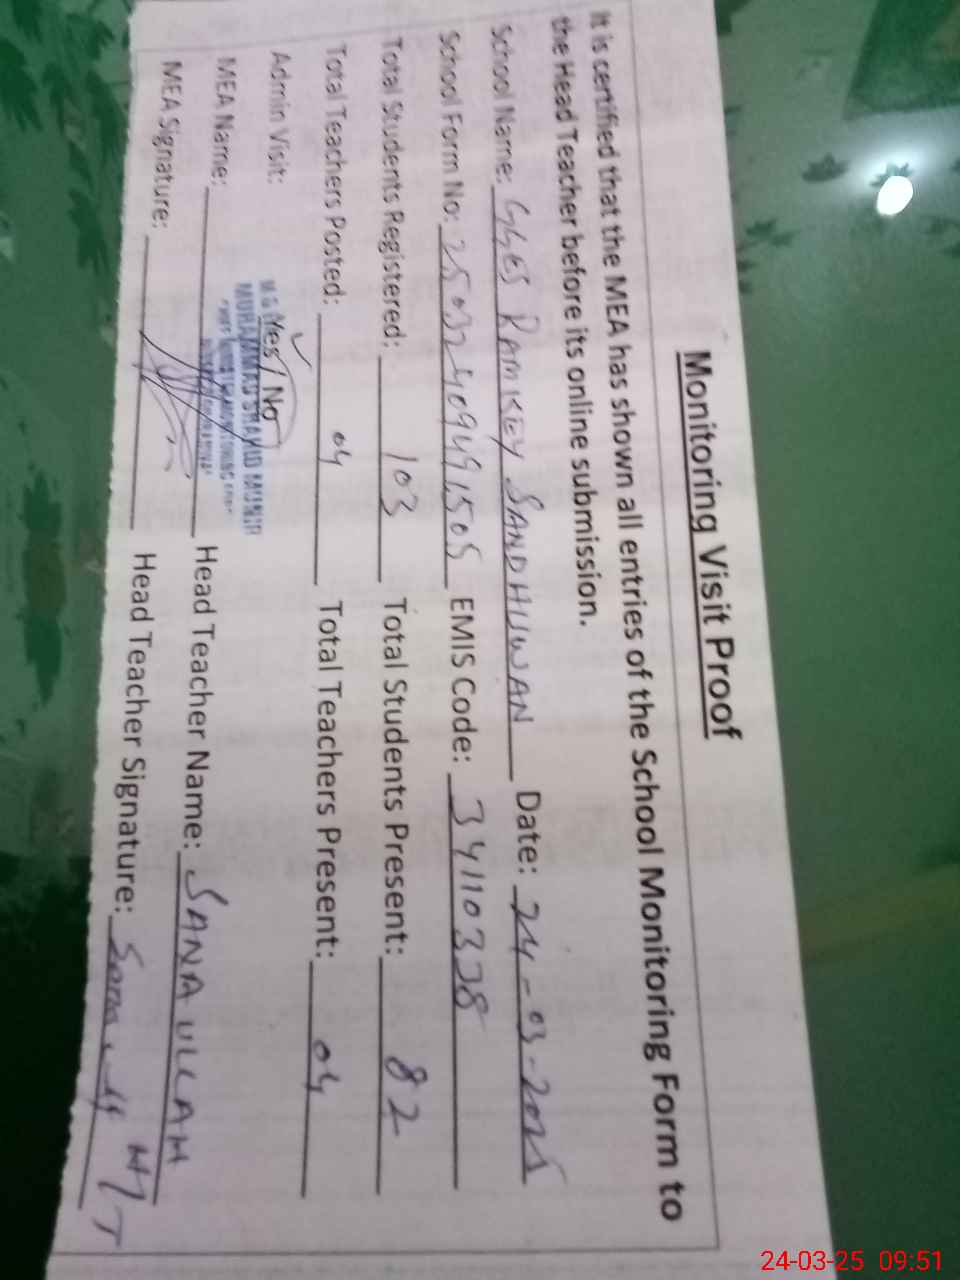 Monitoring Visit Proof
It is certified that the MEA has shown all entries of the School Monitoring Form to
the Head Teacher before its online submission.
School Name: GGES RAMKEY SANDHUWAN Date: 24-03-2025
School Form No: 25032409491505 EMIS Code: 34110338
Total Students Registered: 103 Total Students Present: 82
Total Teachers Posted: 04 Total Teachers Present: 04
Admin Visit: Yes / No
MUHAMMAD SHAHID MUNIR
MEA Name: Head Teacher Name: SANA ULLAH
MEA Signature: Head Teacher Signature: HT
24-03-25 09:51